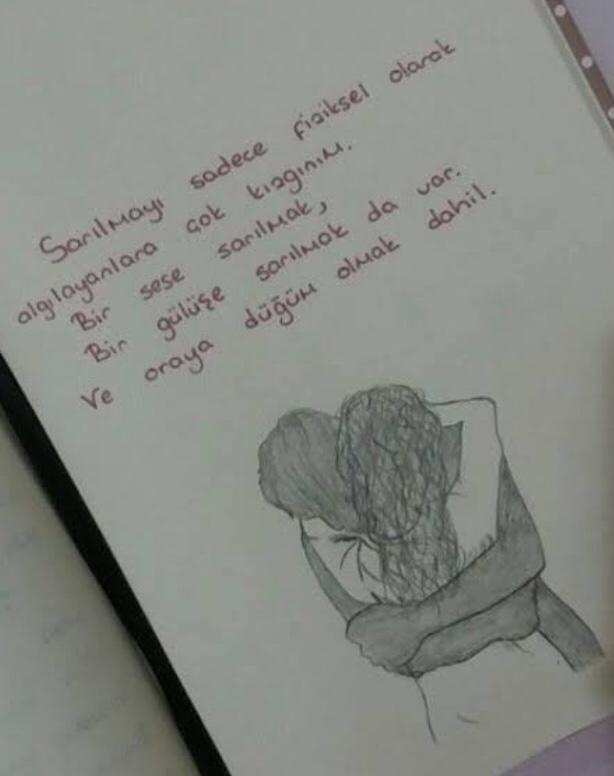 Sarılmayı sadece fiziksel olarak
algılayanlara çok kızgınım.
Bir sese sarılmak,
Bir gülüşe sarılmak da var.
Ve oraya düğüm olmak dahil.